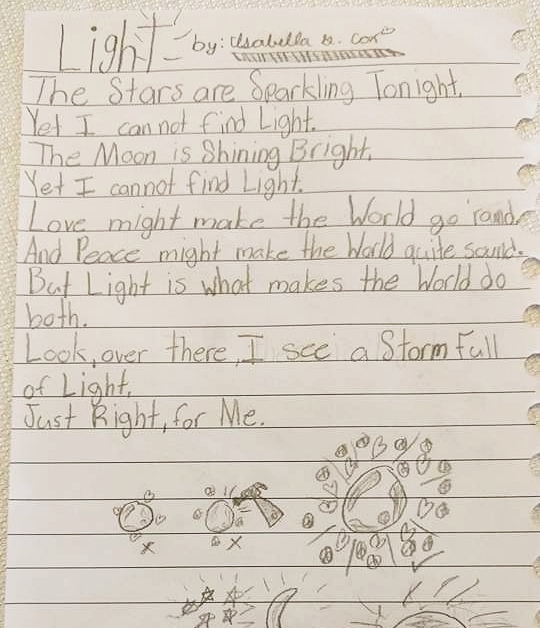 Light by: Isabella R. Cox
The Stars are Sparkling Tonight.
Yet I can not find Light.
The Moon is Shining Bright,
Yet I cannot find Light.
Love might make the World go 'rond,
And Peace might make the World quite sound.
But Light is what makes the World do
both.
Look, over there, I see a Storm Full
of Light,
Just Right, for Me.